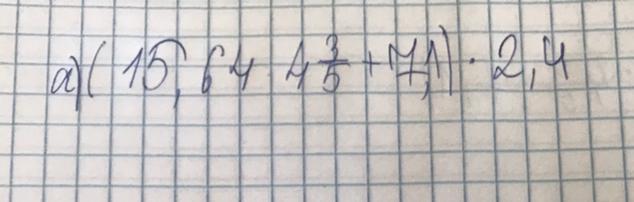 а) ( 15,64 4 3/5 + 7,1) · 2,4